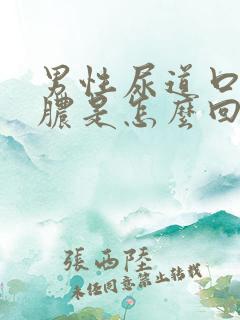 男性尿道口
膿是怎麼回
張西陸
未经同意禁止转载